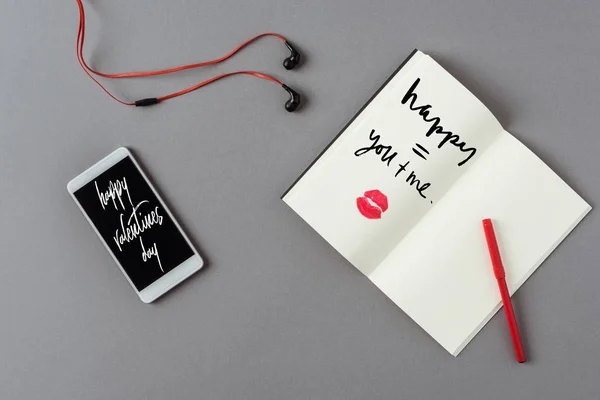 happy
valentines
day
happy
=
you + me.